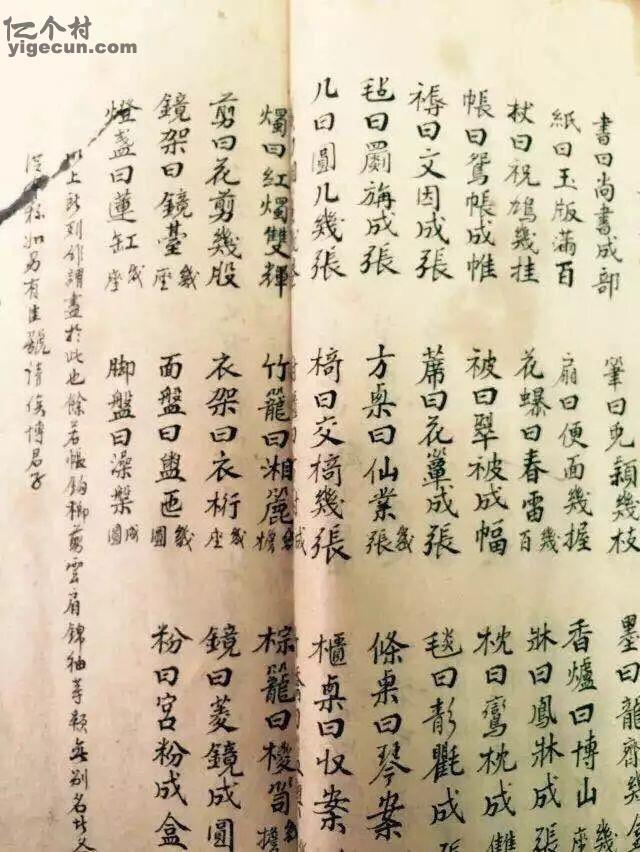 亿个村
yigecun.com
書曰尚書成部 筆曰兔穎幾枝 墨曰龍劑幾
紙曰玉版滿百 扇曰便面幾握 香爐曰博山幾座
杖曰祝鳩幾挂 花曰春雷幾百 牀曰鳳牀成張
帳曰鴛帳成帷 被曰翠被成幅 枕曰鸞枕成雙
褥曰文因成張 蓆曰花簟成張 毯曰彭氍成張
毡曰罽旃成張 方桌曰仙業幾張 條桌曰琴案
几曰圓几幾張 椅曰交椅幾張 櫃桌曰收案
燭曰紅燭雙輝 竹籠曰湘簏擔 棕籠曰椶笥擔
剪曰花剪幾股 衣架曰衣桁幾座 鏡曰菱鏡成圓
鏡架曰鏡臺幾座 面盤曰盥匜幾圓 粉曰宮粉成盒
燈盞曰蓮缸幾座 脚盤曰澡槃成圓
以上所列俗謂盡於此也餘若帳鈎脚剪雲肩錦袖等類無別名於文
從本稱如另有佳號請俟博君子